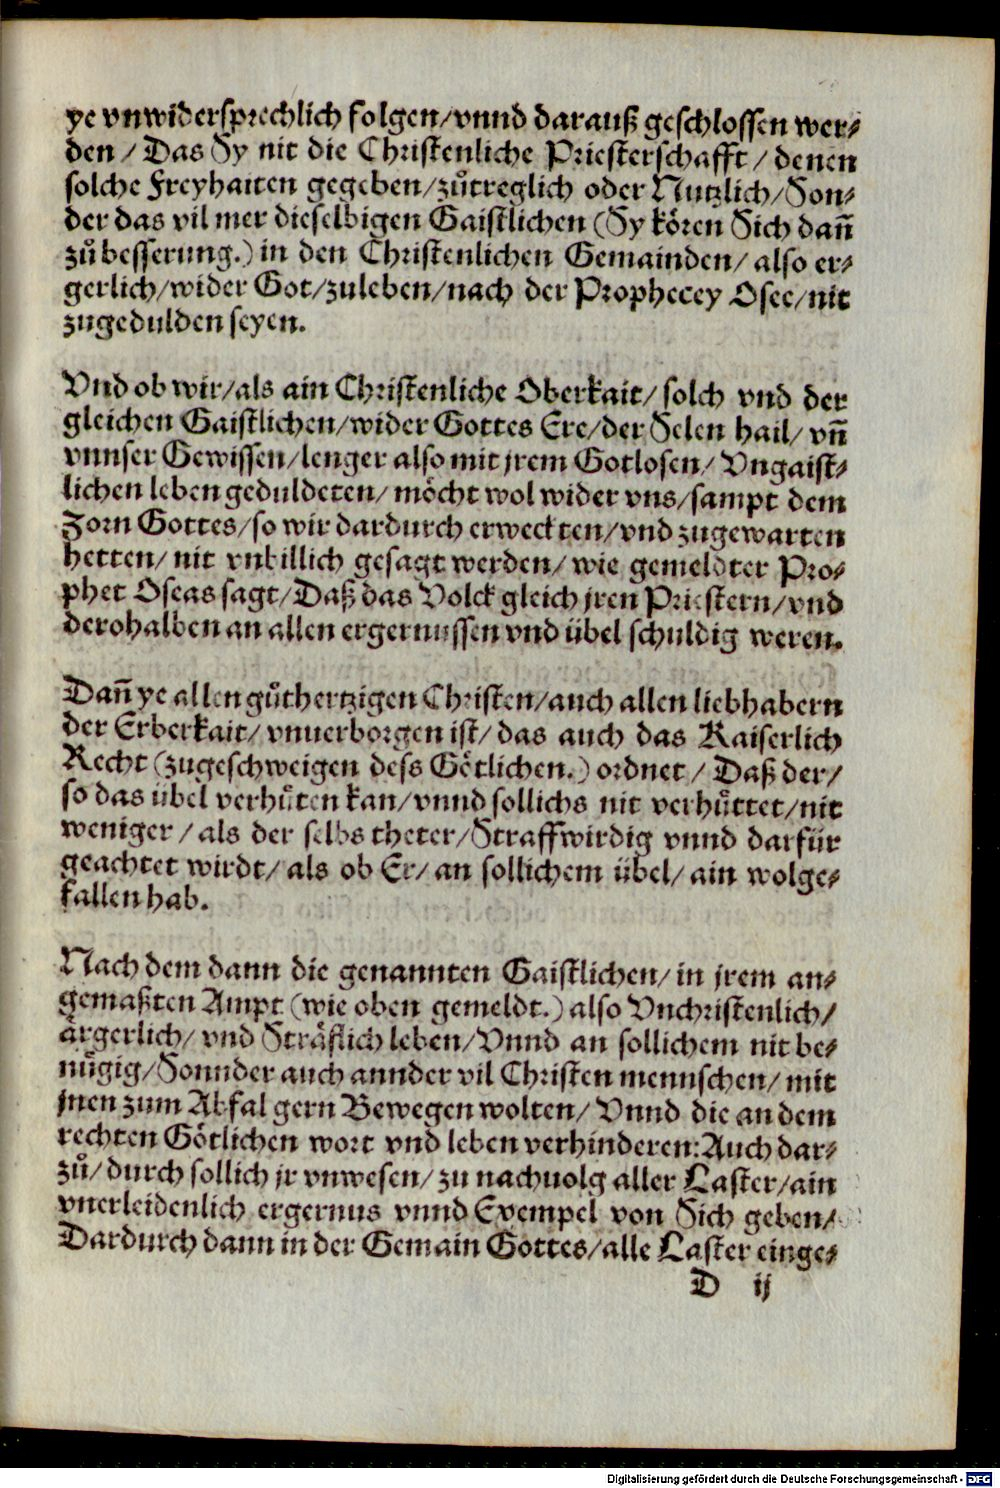 ye vnwidersprechlich folgen/vnnd darauß geschlossen wer⸗
den / Das Sy nit die Christenliche Priesterschafft / denen
solche Freyhaiten gegeben/zůtreglich oder Nutzlich/Son⸗
der das vil mer dieselbigen Gaistlichen (Sy kören Sich dañ
zů besserung.) in den Christenlichen Gemainden/ also er⸗
gerlich/wider Got/zuleben/nach der Prophecey Osee/nit
zugedulden seyen.
Vnd ob wir/als ain Christenliche Oberkait/ solch vnd der
gleichen Gaistlichen/wider Gottes Ere/der Selen hail/ vñ
vnnser Gewissen/lenger also mit jrem Gotlosen/ Vngaist⸗
lichen leben geduldeten/ möcht wol wider vns/sampt dem
Zorn Gottes/so wir dardurch erweckten/vnd zugewarten
hetten/ nit vnbillich gesagt werden/ wie gemeldter Pro⸗
phet Oseas sagt/Daß das Volck gleich jren Priestern/vnd
derohalben an allen ergernussen vnd übel schuldig weren.
Dañ ye allen gůthertzigen Christen/auch allen liebhabern
der Erberkait/ vnuerborgen ist/ das auch das Kaiserlich
Recht (zugeschweigen dess Götlichen.) ordnet / Daß der/
so das übel verhůten kan/vnnd sollichs nit verhůttet/nit
weniger / als der selbs theter/Straffwirdig vnnd darfür
geachtet wirdt/ als ob Er/ an sollichem übel/ ain wolge⸗
fallen hab.
Nach dem dann die genannten Gaistlichen/in jrem an⸗
gemaßten Ampt (wie oben gemeldt.) also Vnchristenlich/
ärgerlich/ vnd Sträflich leben/Vnnd an sollichem nit be⸗
nůgig/Sonnder auch annder vil Christen mennschen/ mit
jnen zum Abfal gern Bewegen wolten/ Vnnd die an dem
rechten Götlichen wort vnd leben verhinderen:Auch dar⸗
zů/ durch sollich jr vnwesen/ zu nachuolg aller Laster/ain
vnerleidenlich ergernus vnnd Exempel von Sich geben/
Dardurch dann in der Gemain Gottes/alle Laster einge⸗
D ij
Digitalisierung gefördert durch die Deutsche Forschungsgemeinschaft - DFG